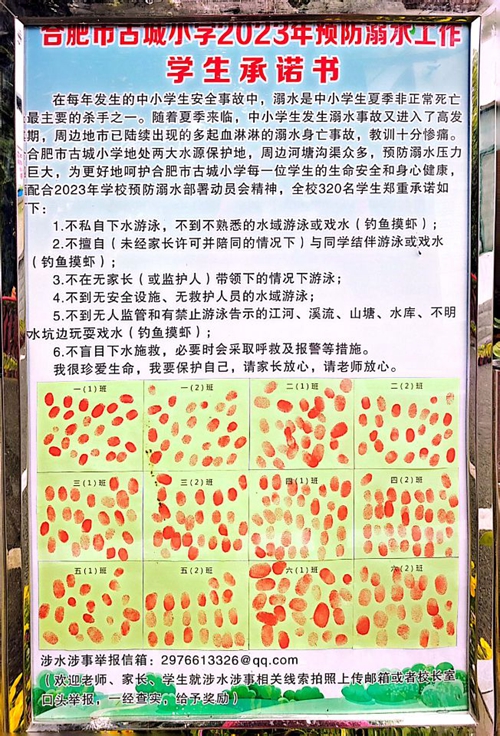 合肥市古城小学2023年预防溺水工作
学生承诺书
在每年发生的中小学生安全事故中，溺水是中小学生夏季非正常死亡
最主要的杀手之一。随着夏季来临，中小学生发生溺水事故又进入了高发
期，周边地市已陆续出现的多起血淋淋的溺水身亡事故，教训十分惨痛。
合肥市古城小学地处两大水源保护地，周边河塘沟渠众多，预防溺水压力
巨大，为更好地呵护合肥市古城小学每一位学生的生命安全和身心健康，
配合2023年学校预防溺水部署动员会精神，全校320名学生郑重承诺如
下：
1.不私自下水游泳，不到不熟悉的水域游泳或戏水（钓鱼摸虾）；
2.不擅自（未经家长许可并陪同的情况下）与同学结伴游泳或戏水
（钓鱼摸虾）；
3.不在无家长（或监护人）带领下的情况下游泳；
4.不到无安全设施、无救护人员的水域游泳；
5.不到无人监管和有禁止游泳告示的江河、溪流、山塘、水库、不明
水坑边玩耍戏水（钓鱼摸虾）；
6.不盲目下水施救，必要时会采取呼救及报警等措施。
我很珍爱生命，我要保护自己，请家长放心，请老师放心。
一(1)班 一(2)班 二(1)班 二(2)班
三(1)班 三(2)班 四(1)班 四(2)班
五(1)班 五(2)班 六(1)班 六(2)班
涉水涉事举报信箱：2976613326@qq.com
（欢迎老师、家长、学生就涉水涉事相关线索拍照上传邮箱或者校长室
口头举报，一经查实，给予奖励）